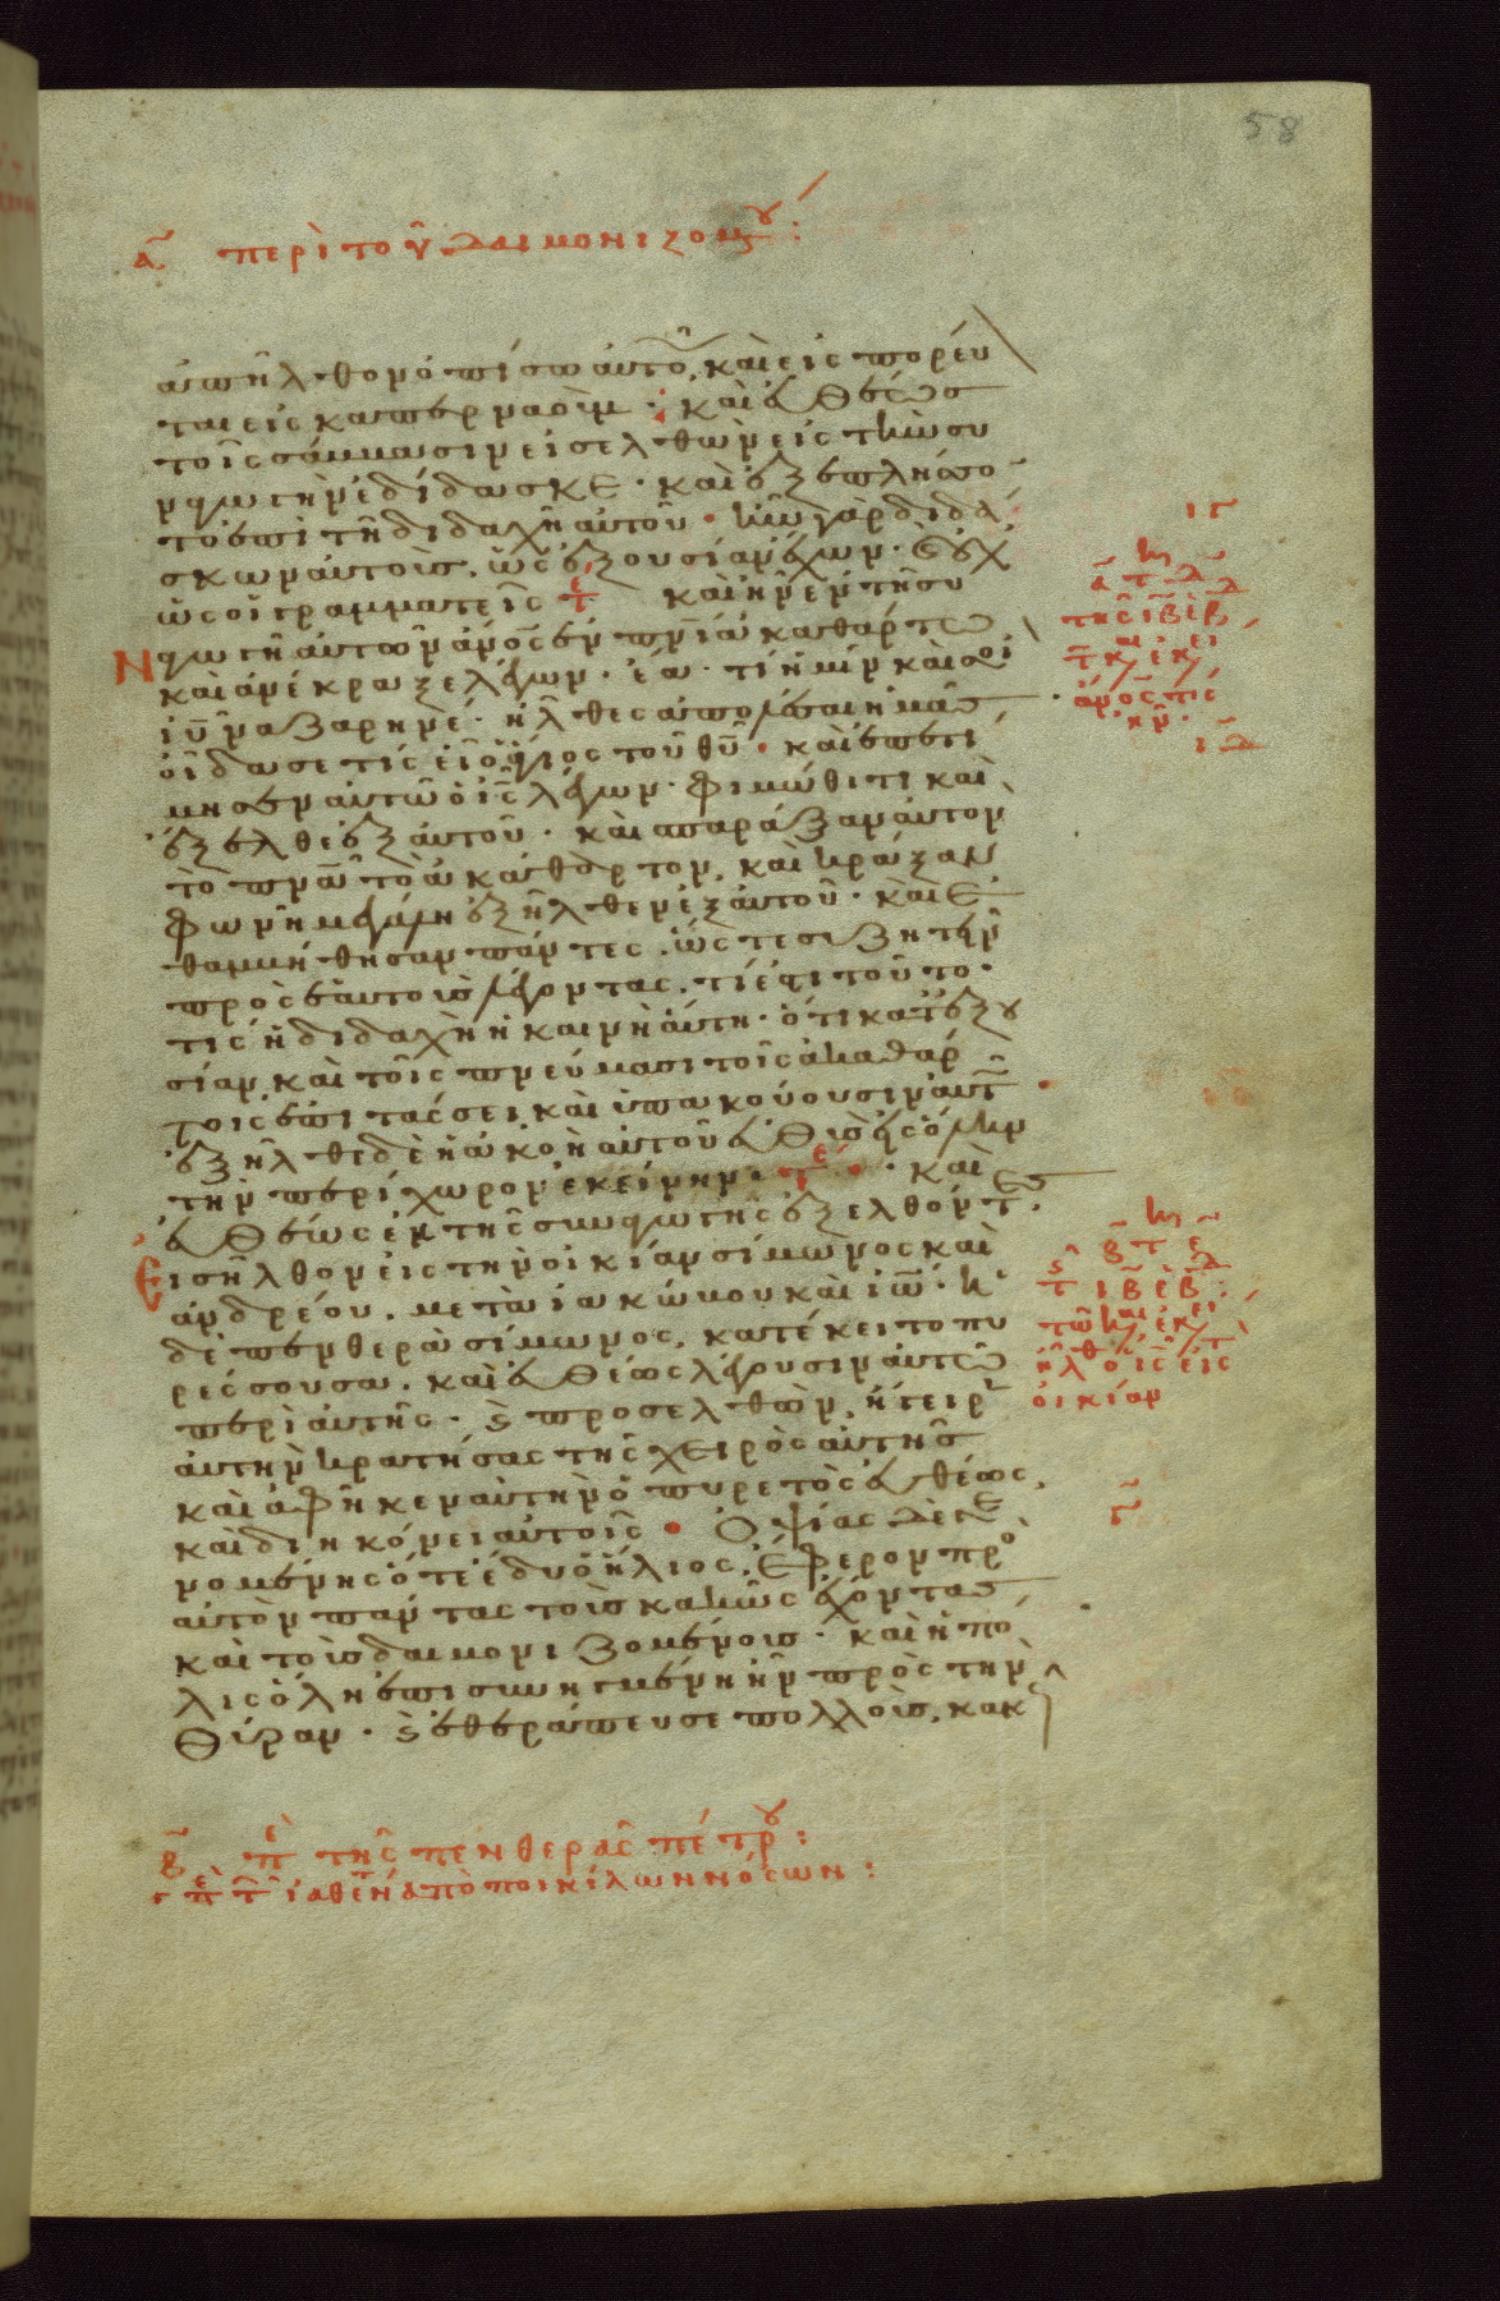 58
α περὶ τοῦ δαιμονιζομου:
ἀπῆλθον ὀπίσω αὐτοῦ. καὶ εἰς πορεύ
ται εἰς καπερναούμ· καὶ εὐθέως
τοῖς σάββασιν εἰσελθὼν εἰς τὴν συ
ναγωγὴν ἐδίδασκε· καὶ ἐξεπλήσσο
το ἐπὶ τῇ διδαχῇ αὐτοῦ· ἦν γὰρ διδά
σκων αὐτοὺς. ὡς ἐξουσίαν ἔχων· οὐχ
ὡς οἱ γραμματεῖς τε καὶ ἦν ἐν τῇ συ
ναγωγῇ αὐτῶν ἄνος ἐν πνι ἀκαθάρτω
καὶ ἀνέκραξε λέγων· ἔα· τί ἡμῖν καὶ σοὶ
ιυ ναζαρηνέ· ἦλθες ἀπολέσαι ἡμᾶς
οἶδα σε τίς εἶ ὁ ἅγιος τοῦ θυ· καὶ ἐπετί
μησεν αὐτῶ ὁ ις λέγων· φιμώθιτι καὶ
ἔξελθε ἐξ αὐτοῦ· καὶ σπαράξαν αὐτὸν
τὸ πνα τὸ ἀκάθαρτον, καὶ κράξαν
φωνῇ μεγάλη ἐξῆλθεν ἐξ αὐτοῦ· καὶ ἐ
θαμβήθησαν πάντες. ὥστε συζητεῖν
πρὸς ἑαυτοὺς λέγοντας. τί ἐστι τοῦτο·
τίς ἡ διδαχὴ ἡ καινὴ αὕτη· ὅτι κατ ἐξου
σίαν καὶ τοῖς πνεύμασι τοῖς ἀκαθάρ
τοις ἐπιτάσσει καὶ ὑπακούουσιν αὐτ
ἐξῆλθε δὲ ἡ ἀκοὴ αὐτοῦ εὐθὺς εἰς ὅλην
τὴν περίχωρον ἐκείνην· τε· καὶ
εὐθέως ἐκ τῆς συναγωγῆς ἐξελθόντες
εἰσῆλθον εἰς τὴν οἰκίαν σίμωνος καὶ
ἀνδρέου. μετὰ ἰακώβου καὶ ιω· ἡ
δὲ πενθερὰ σίμωνος. κατέκειτο πυ
ρέσσουσα. καὶ εὐθέως λέγουσιν αὐτῶ
περὶ αὐτῆς· καὶ προσελθὼν, ἤγειρ
αὐτὴν κρατήσας τῆς χειρὸς αὐτῆς
καὶ ἀφῆκεν αὐτὴν ὁ πυρετὸς εὐθέως.
καὶ διηκόνει αὐτοῖς· Ὀψίας δὲ γε
νομένης ὅτε ἔδυ ὁ ἥλιος. ἔφερον πρὸ
αὐτὸν πάντας τοὺς κακῶς ἔχοντας
καὶ τοὺς δαιμονιζομένους· καὶ ἡ πό
λις ὅλη ἐπισυνηγμένη ἦν πρὸς τὴν
θύραν· καὶ ἐθεράπευσε πολλοὺς. κακ
ιγ
της ιβ εβ
ἄνος τις
ἦν·
ιδ
τ ιβ εβ
ἦλθ ὁ ις εἰς
οἰκίαν
β πε τῆς πενθερᾶς πέτρου:
γ πε τ ἰαθέντ ἀπὸ ποικίλων νόσων: